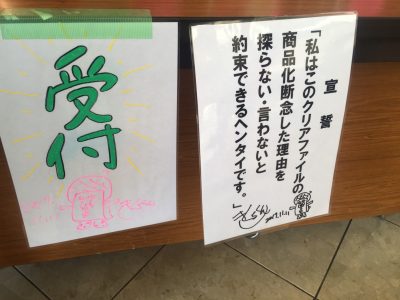 受付
宣誓
「私はこのクリアファイルの
商品化断念した理由を
探らない・言わないと
約束できるヘンタイです。」